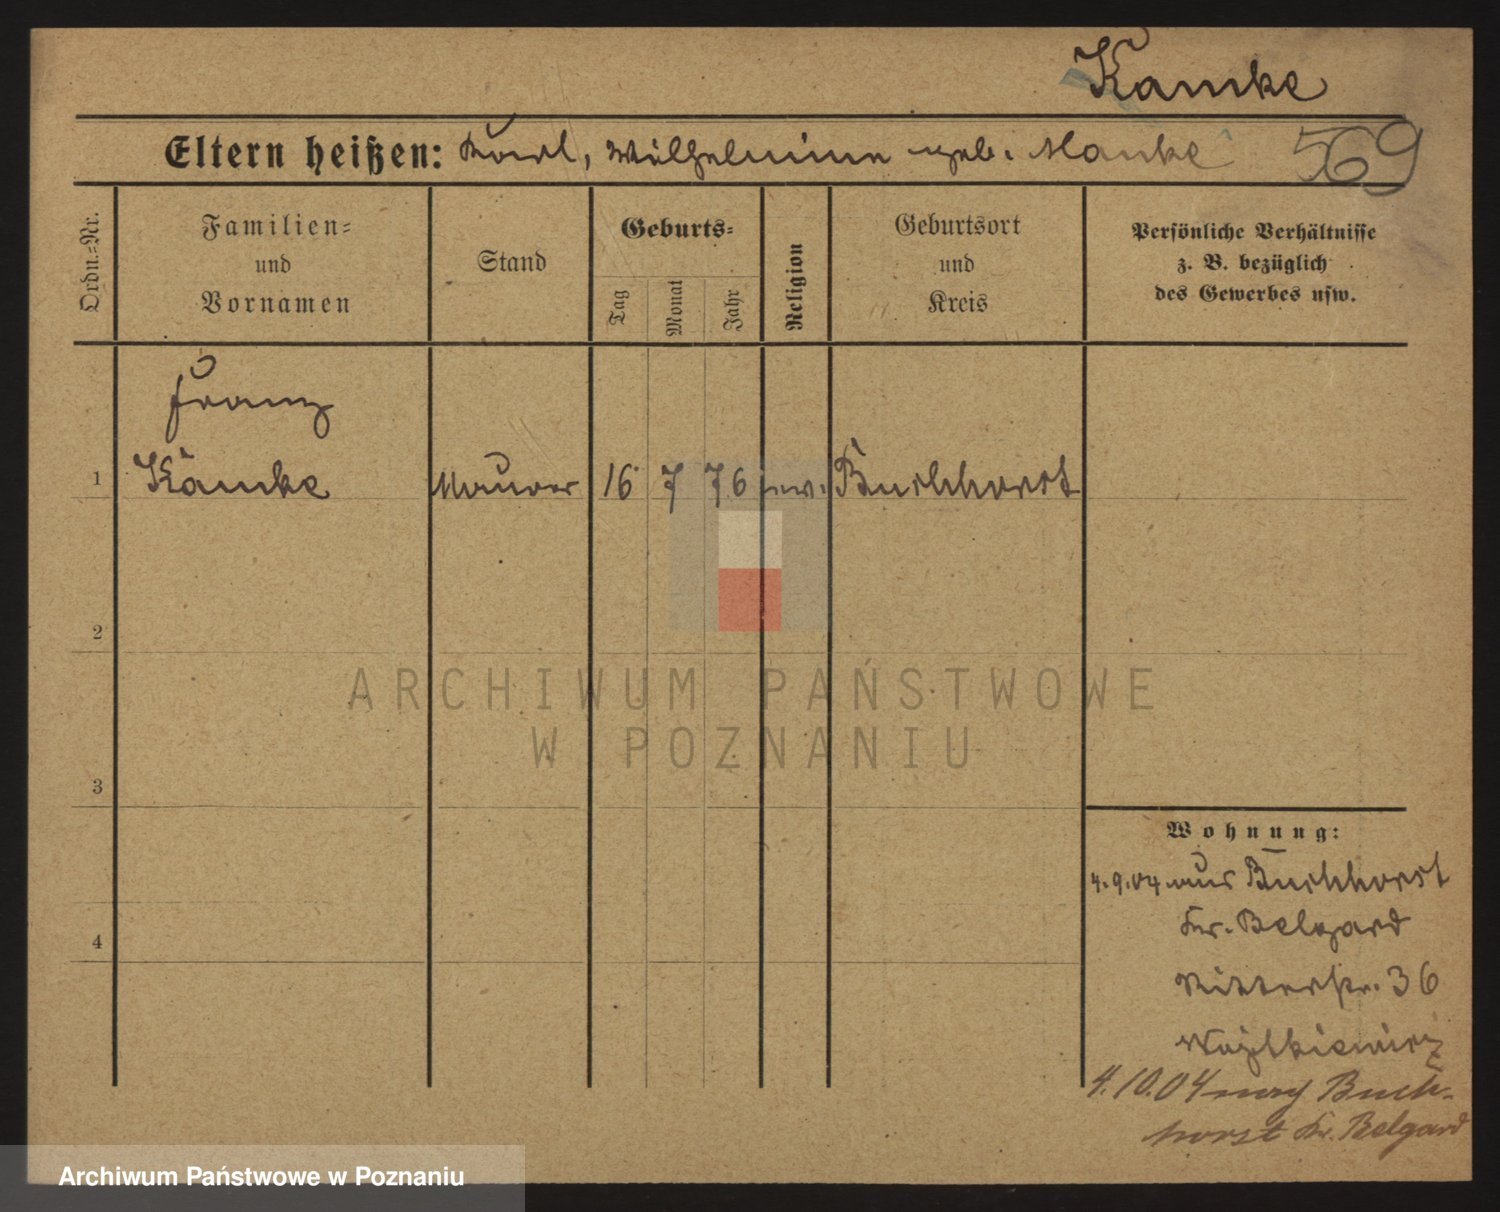 Kamke
Eltern heißen: Karl, Wilhelmine geb. Manke 569
Ordn.-Nr.
Familien-
und
Vornamen
Stand
Geburts-
Tag
Monat
Jahr
Religion
Geburtsort
und
Kreis
Persönliche Verhältnisse
z. B. bezüglich
des Gewerbes usw.
Franz
1 Kamke Maurer 16 7 76 ev. Buchhorst
2
3
4
Wohnung:
4.9.04 aus Buchhorst
Kr. Belgard
Ritterstr. 36
4.10.04 nach Buch-
horst Kr. Belgard
ARCHIWUM PAŃSTWOWE
W POZNANIU
Archiwum Państwowe w Poznaniu